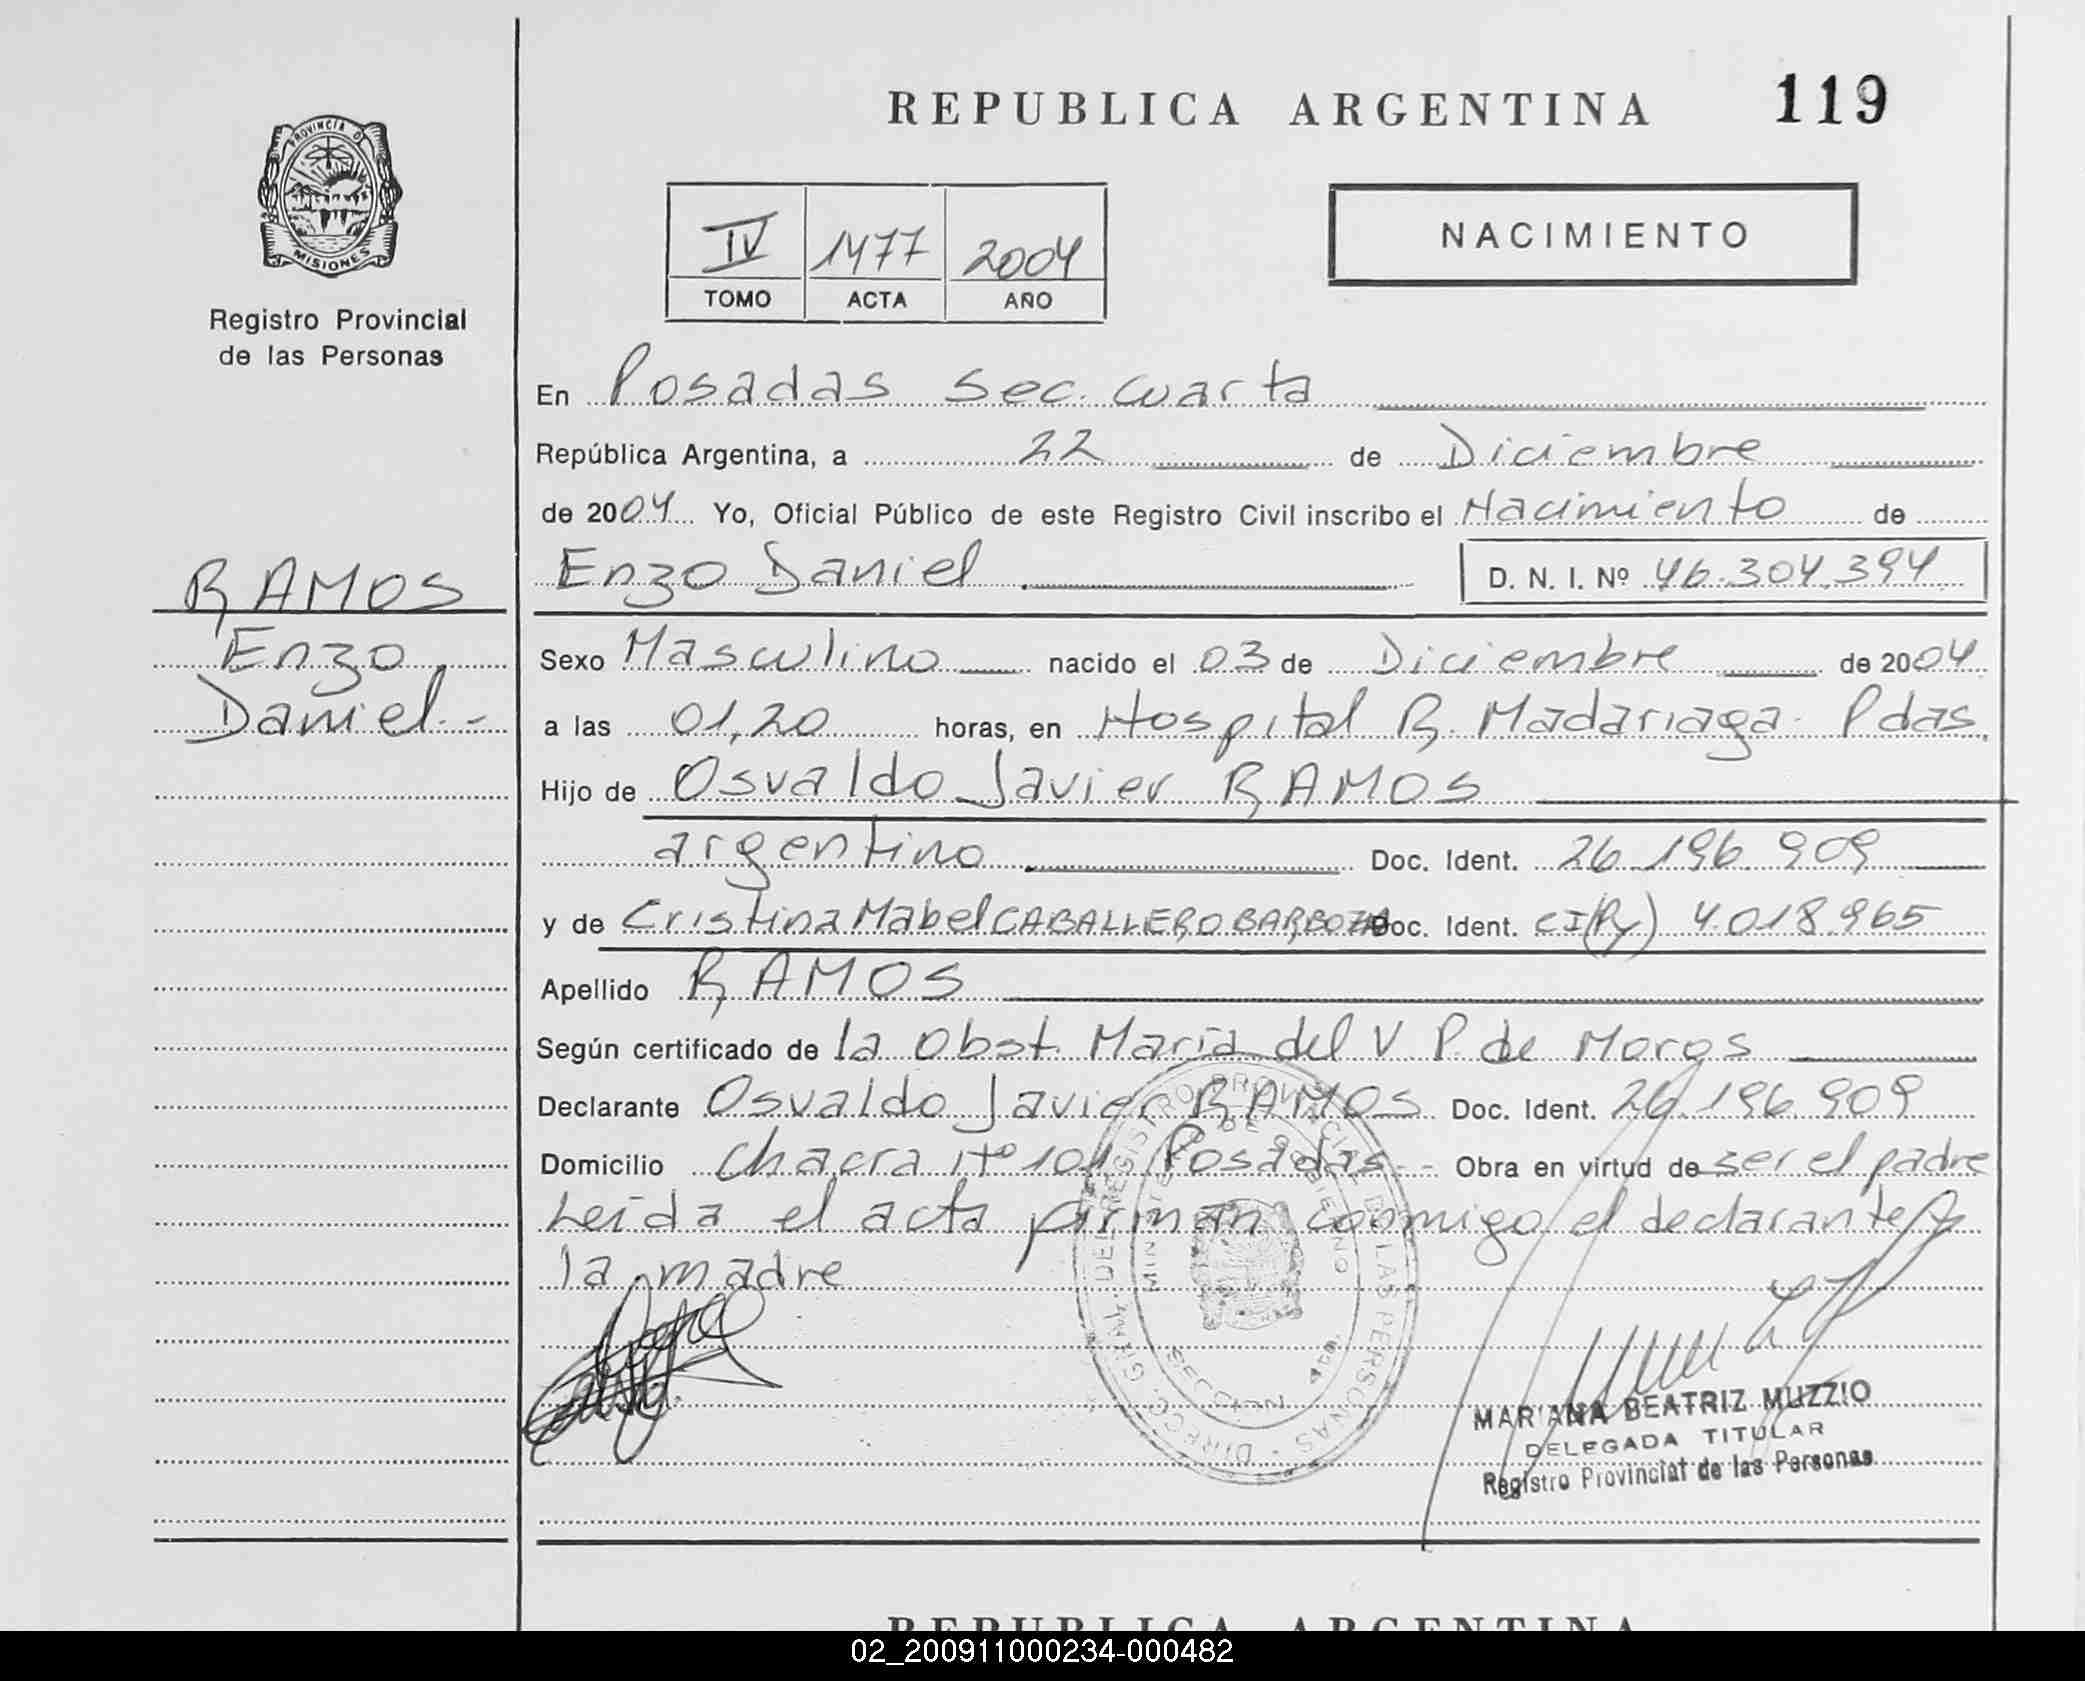 REPUBLICA ARGENTINA 119
PROVINCIA DE
MISIONES
Registro Provincial
de las Personas
IV 1477 2004
TOMO ACTA AÑO
NACIMIENTO
En Posadas Sec. Cuarta
República Argentina, a 22 de Diciembre
de 2004 Yo, Oficial Público de este Registro Civil inscribo el Nacimiento de
Enzo Daniel D. N. I. Nº 46.304.394
RAMOS
Enzo
Daniel.-
Sexo Masculino nacido el 03 de Diciembre de 2004
a las 01,20 horas, en Hospital R. Madariaga. Pdas.
Hijo de Osvaldo Javier RAMOS
argentino Doc. Ident. 26.196.909
y de Cristina Mabel CABALLERO BARBOZA Doc. Ident. CI(Py) 4.018.965
Apellido RAMOS
Según certificado de la Obst. María del V P. de
Declarante Osvaldo Javier RAMOS Doc. Ident. 26.196.909
Domicilio Chacra Nº 101 Posadas.- Obra en virtud de ser el padre
Leída el acta firman conmigo el declarante y
la madre
DIRECC. GRAL. DEL REGISTRO PROVINCIAL DE LAS PERSONAS
MINISTERIO DE GOBIERNO
SECCION 4ta.
MARIANA BEATRIZ MUZZIO
DELEGADA TITULAR
Registro Provincial de las Personas
REPUBLICA ARGENTINA
02_200911000234-000482